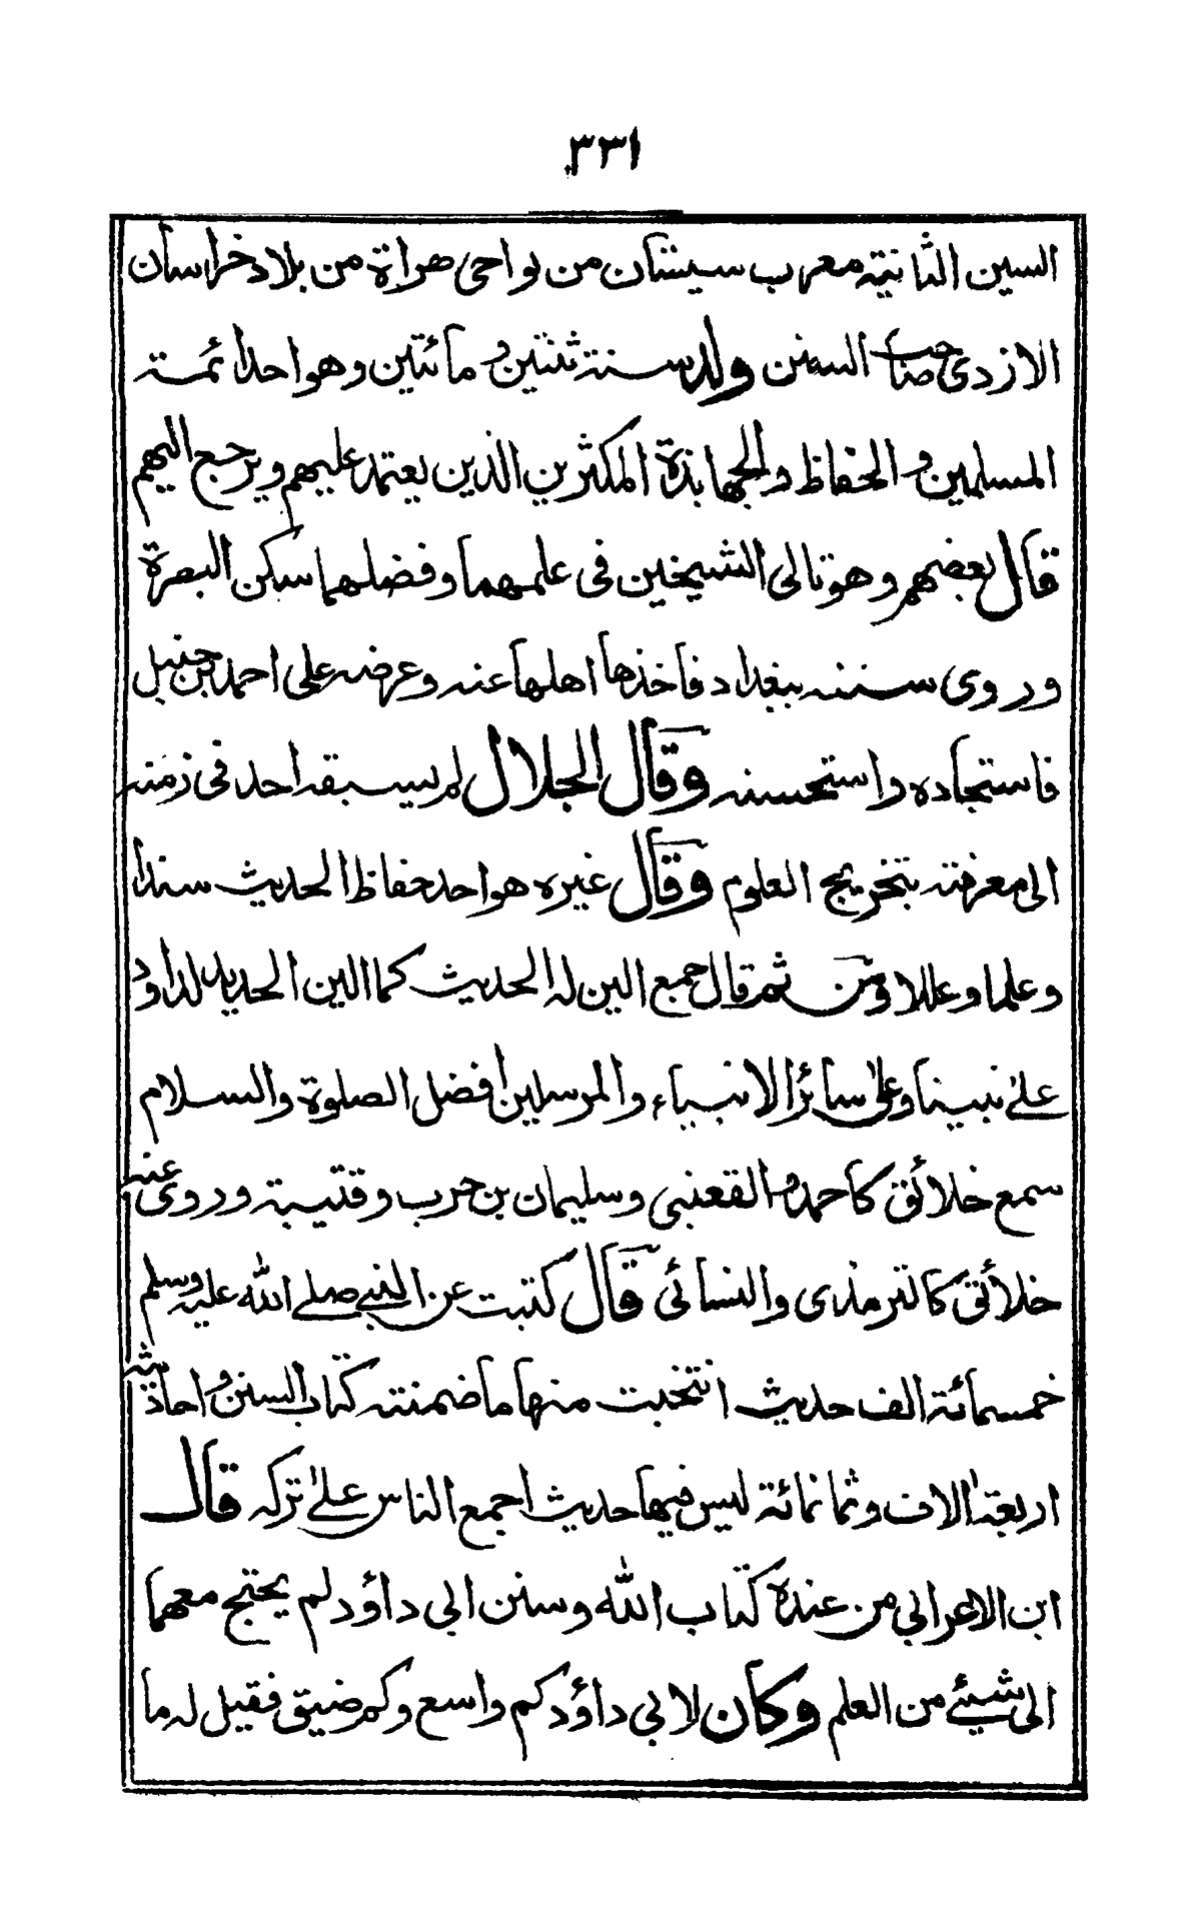 ٣٣١
السين الثانية معرب سيستان من نواحى هراة من بلاد خراسان
الازدى صاحب السنن ولد سنة ثنتين و مائتين وهو احد ائمة
المسلمين و الحفاظ والجهابذة المكثرين الذين يعتمد عليهم ويرجع اليهم
قال بعضهم وهو تالى الشيخين فى علمهما وفضلهما سكن البصرة
وروى سننه ببغداد فاخذها اهلها عنه وعرضه على احمد بن حنبل
فاستجاده واستحسنه وقال الجلال لم يسبقه احد فى زمنه
الى معرفته بتخريج العلوم وقال غيره هو احد حفاظ الحديث سندا
وعلما وعللا ومن ثم قال جمع الين له الحديث كما الين الحديد لداود
على نبينا وعلى سائر الانبياء والمرسلين افضل الصلوة والسلام
سمع خلائق كاحمد والقعنبى وسليمان بن حرب وقتيبة وروى عنه
خلائق كالترمذى والنسائى قال كتبت عن النبى صلى الله عليه وسلم
خمسمائة الف حديث انتخبت منها ما ضمنته كتاب السنن و احاديثه
اربعة الاف وثمانمائة ليس فيها حديث اجمع الناس على تركه قال
ابن الاعرابي من عنده كتاب الله وسنن ابي داؤد لم يحتج معهما
الى شيئ من العلم وكان لابي داؤد كم واسع وكم ضيق فقيل له ما